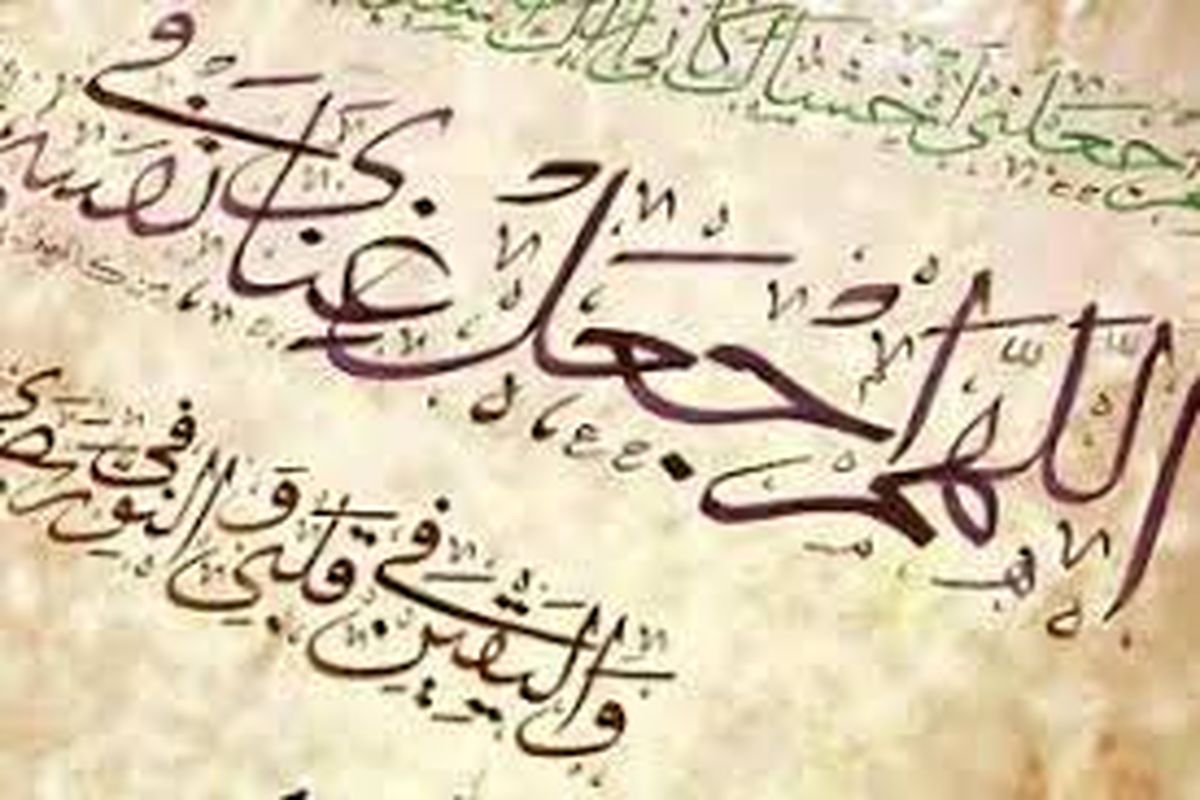 اجعلني اخشاك كاني اراك
اللهم اجعل غناي في نفسي
واليقين في قلبي و النور في بصري